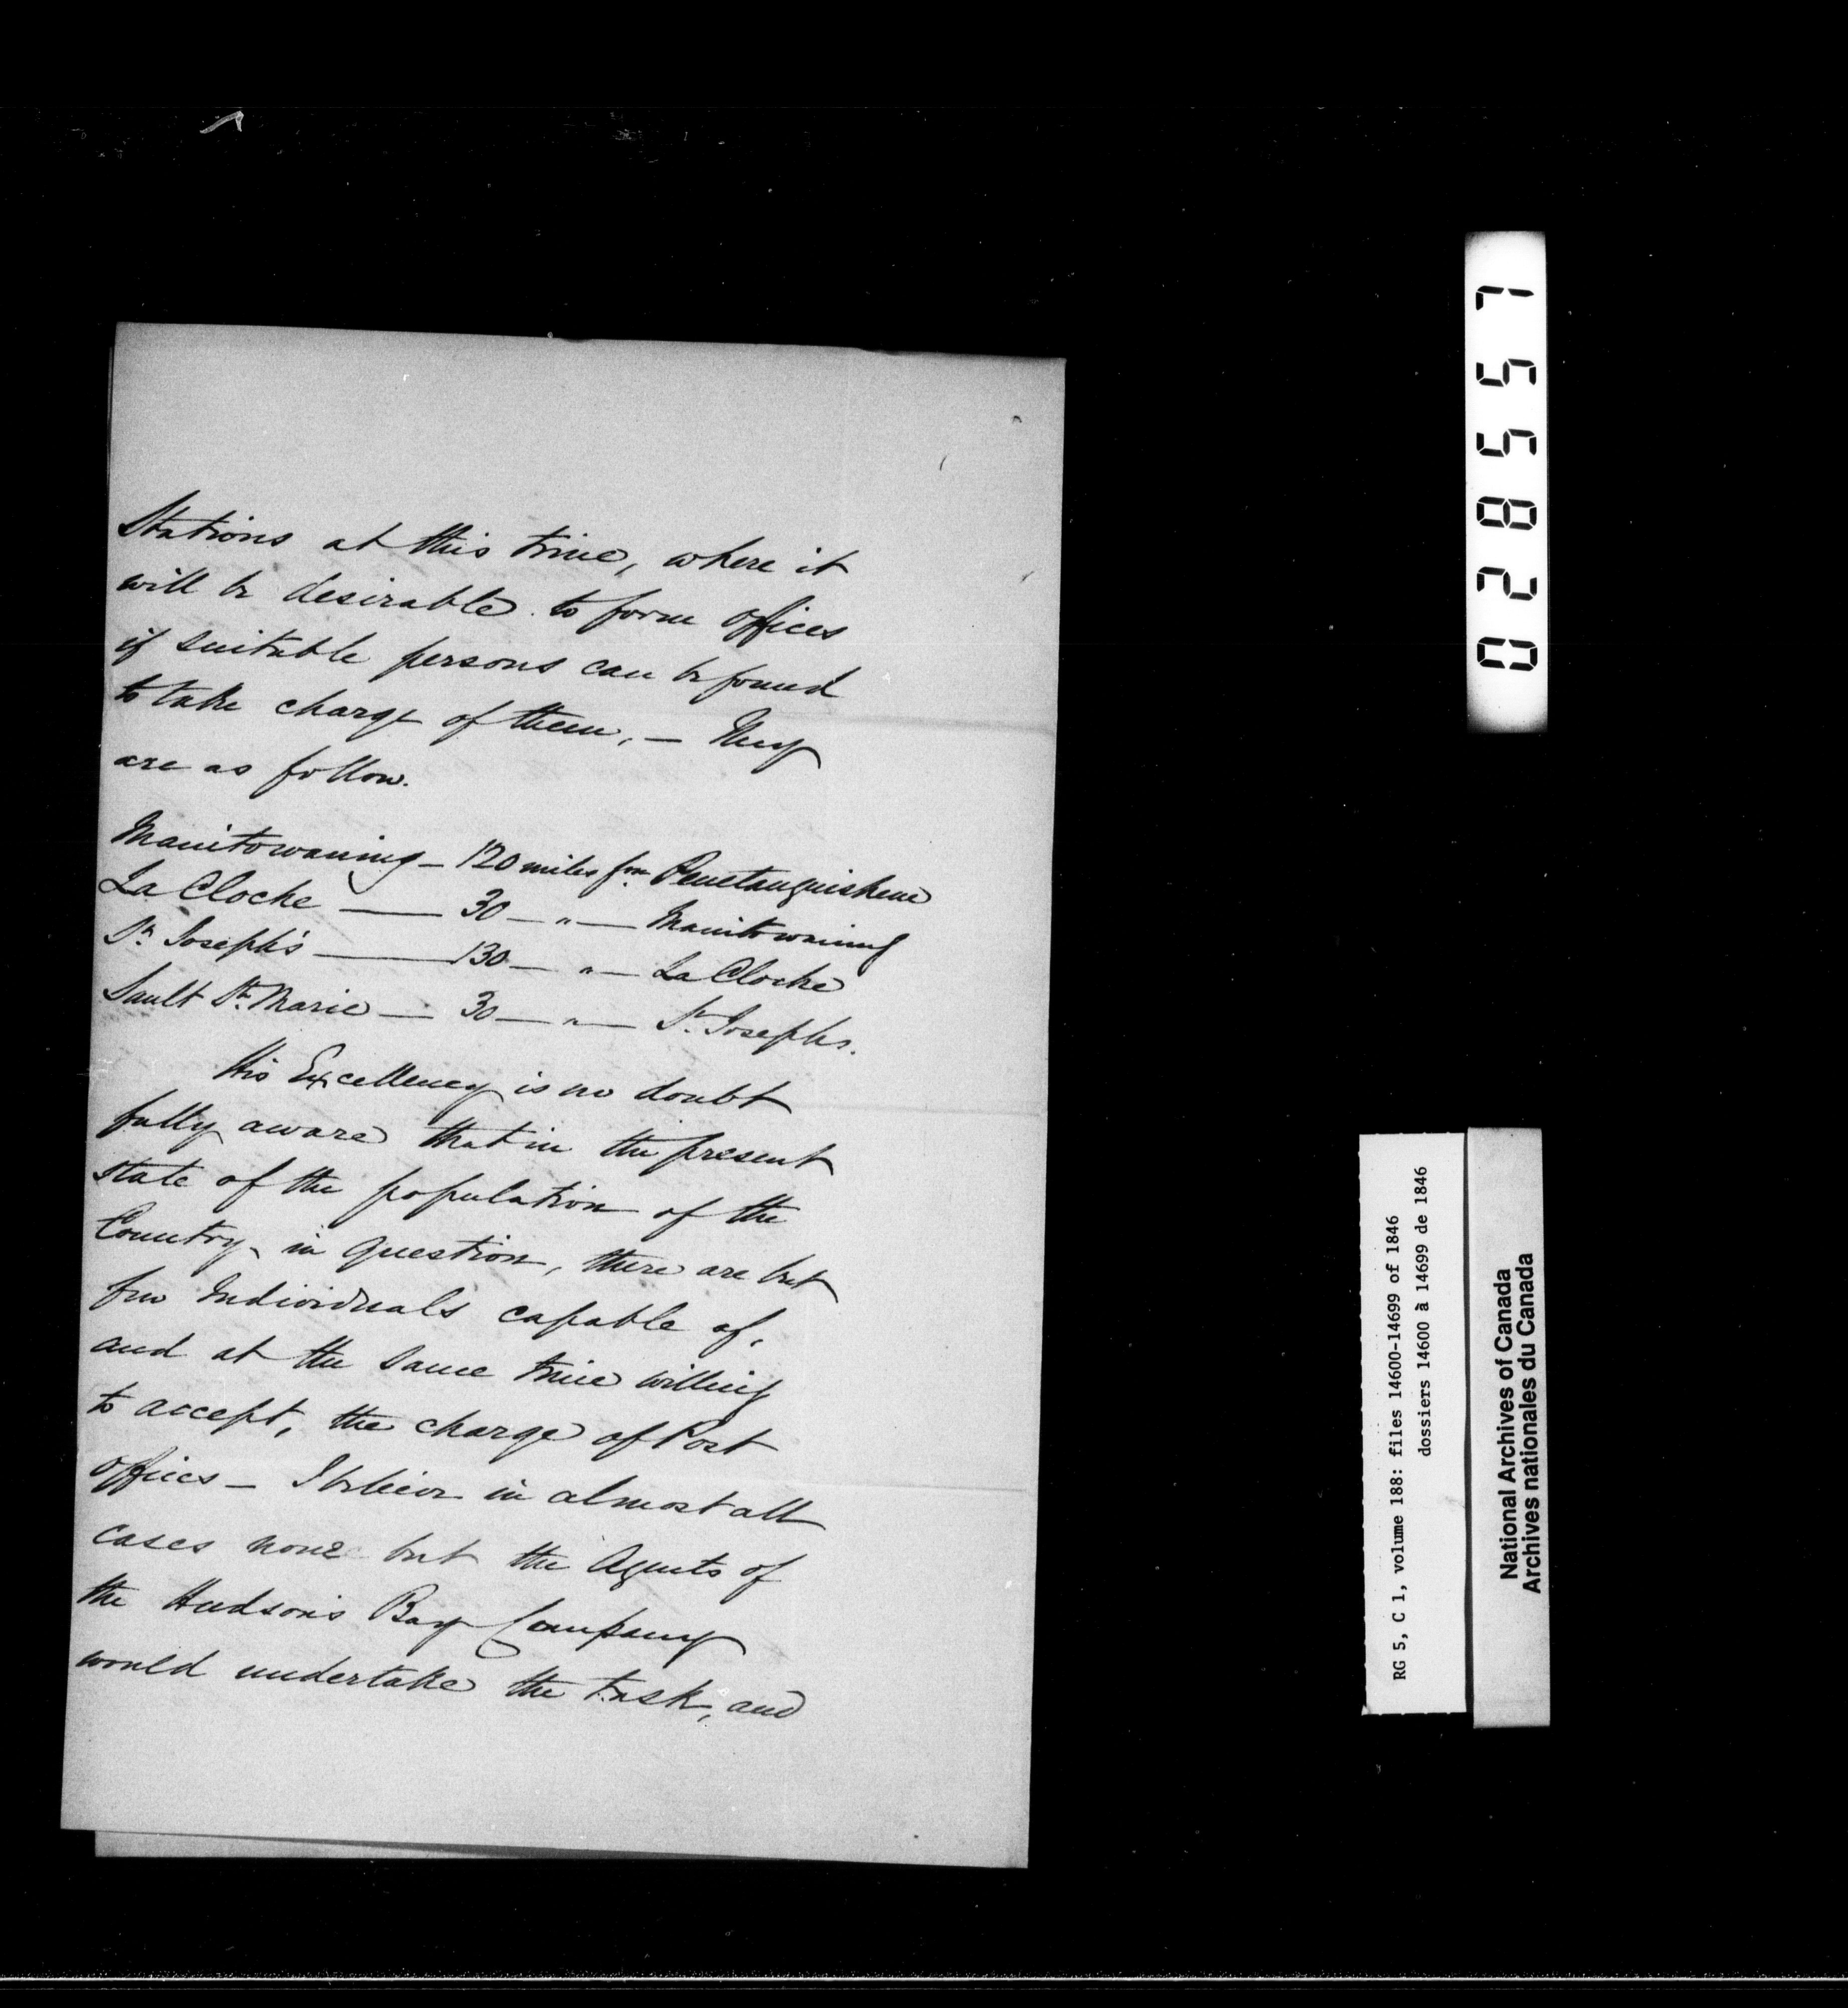 Stations at this time, where it
will be desirable to form offices
if suitable persons can be found
to take charge of them, — They
are as follow.
Manitowaning — 120 miles fm Penetanguishene
La Cloche —— 30 — " — Manitowaning
St. Joseph's —— 130 — " — La Cloche
Sault St. Marie — 30 — " — St. Josephs.
His Excellency is no doubt
fully aware that in the present
state of the population of the
Country in question, there are but
few Individuals capable of,
and at the same time willing
to accept, the charge of Post
offices — I believe in almost all
cases none but the Agents of
the Hudson's Bay Company
would undertake the task, and
028557
RG 5, C 1, volume 188: files 14600-14699 of 1846
dossiers 14600 à 14699 de 1846
National Archives of Canada
Archives nationales du Canada